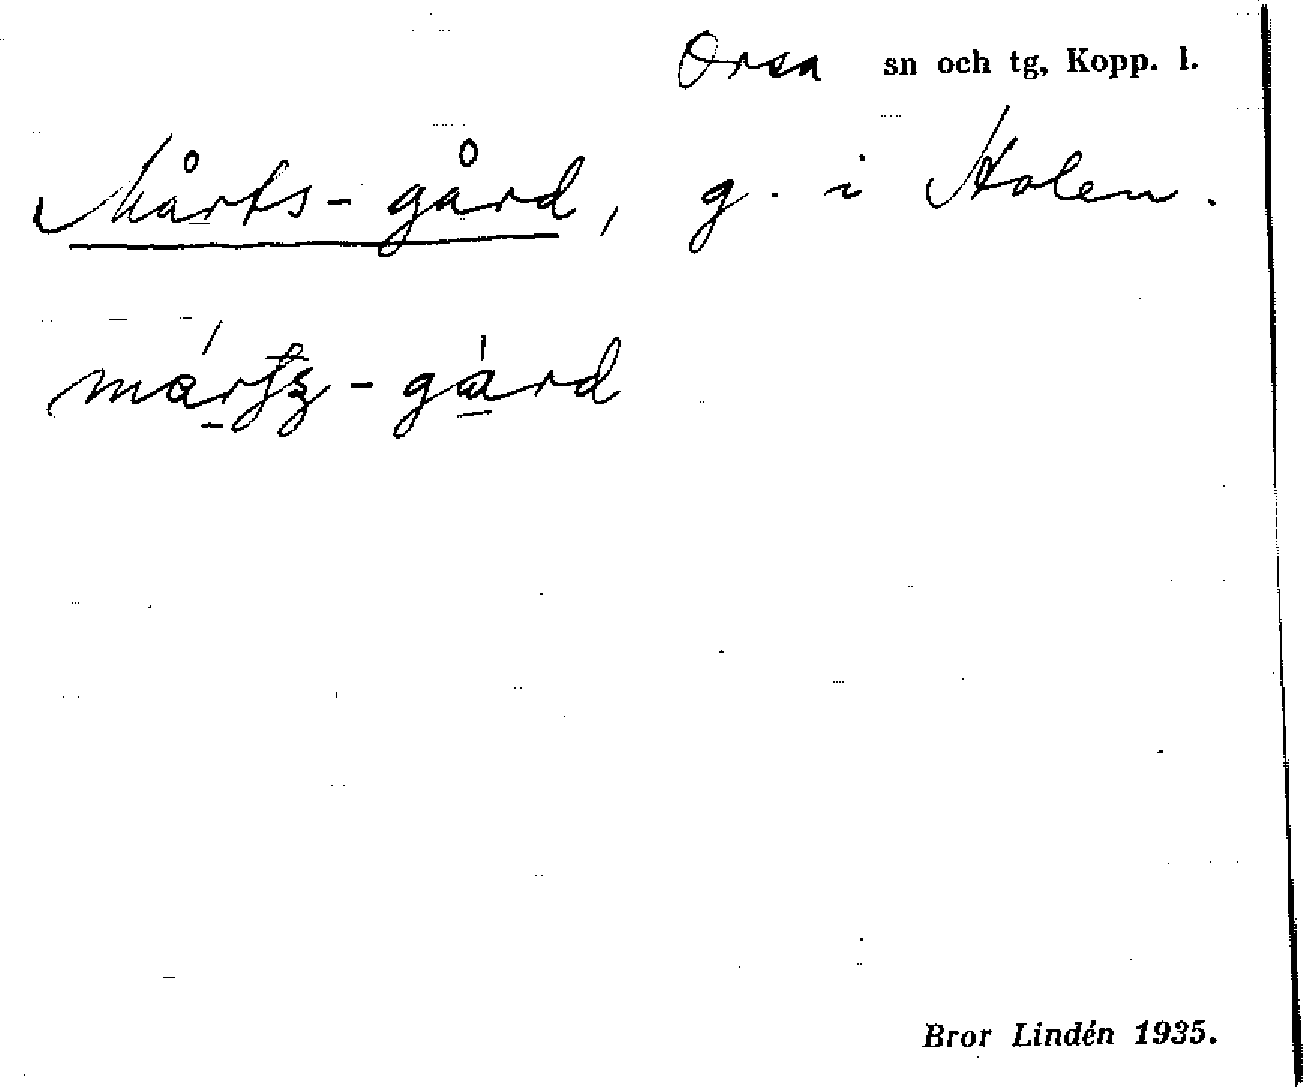 Orsa sn och tg, Kopp. l.
Mårts-gård, g. i Holen.
Bror Lindén 1935.